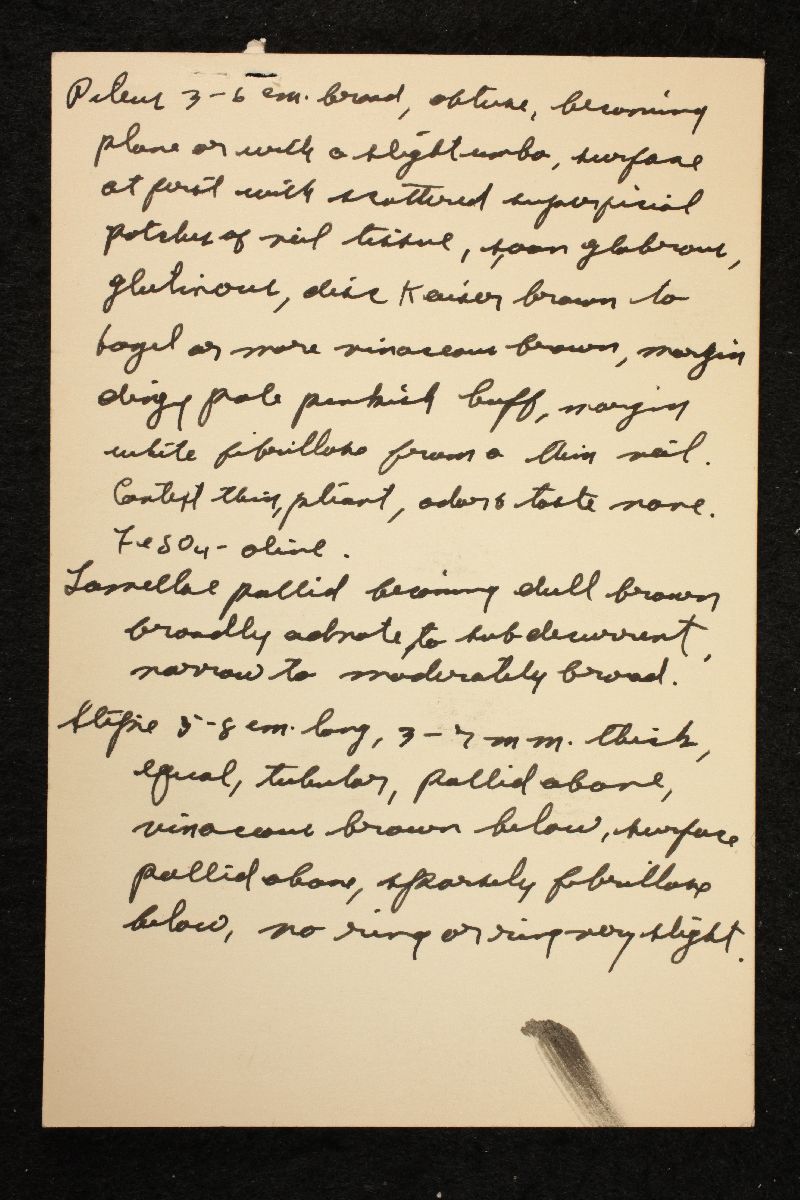 Pileus 3-6 cm. broad, obtuse, becoming
plane or with a slight umbo, surface
at first with scattered superficial
patches of veil tissue, soon glabrous,
glutinous, disc Kaiser brown to
hazel or more vinaceous brown, margin
dingy pale pinkish buff, margin
white fibrillose from a thin veil.
Context thin, pliant, odor & taste none.
FeSO4 - olive.
Lamellae pallid becoming dull brown
broadly adnate, to subdecurrent,
narrow to moderately broad.
Stipe 5-8 cm. long, 3-7 mm. thick,
equal, tubular, pallid above,
vinaceous brown below, surface
pallid above, sparsely fibrillose
below, no ring or ring very slight.